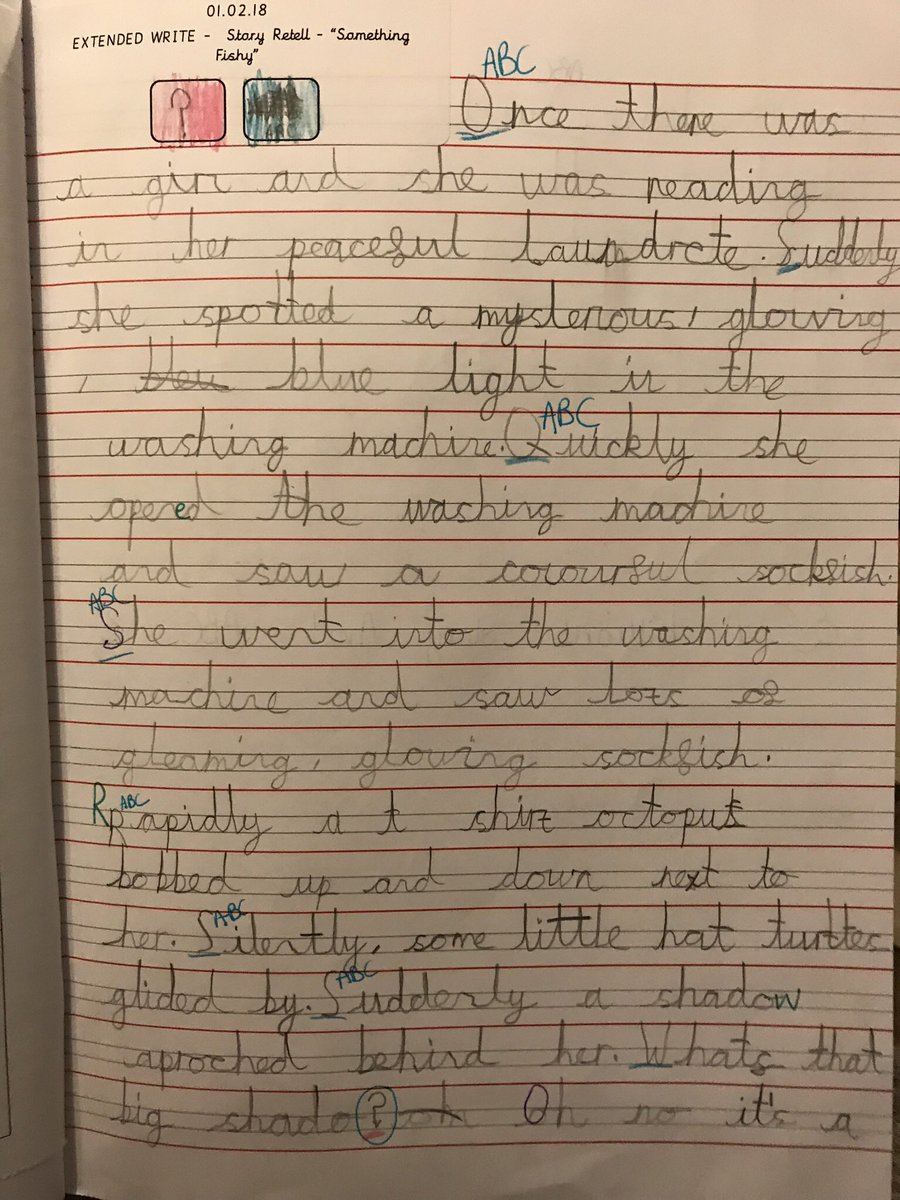 01.02.18
EXTENDED WRITE - Story Retell - "Something
Fishy"
ABC
Once there was
a girl and she was reading
in her peaceful laundrete. Suddenly
she spotted a mysterous, glowing
, bleu blue light in the
washing machine. Quickly she
ABC
opened the washing machine
and saw a colourful sockfish.
ABC
She went into the washing
machine and saw lots of
gleaming, glowing sockfish.
Rrapidly a t shirt octoput
ABC
bobbed up and down next to
her. Silently, some little hat turtles
ABC
glided by. Suddenly a shadow
ABC
aproched behind her. Whats that
big shado? oh Oh no it's a